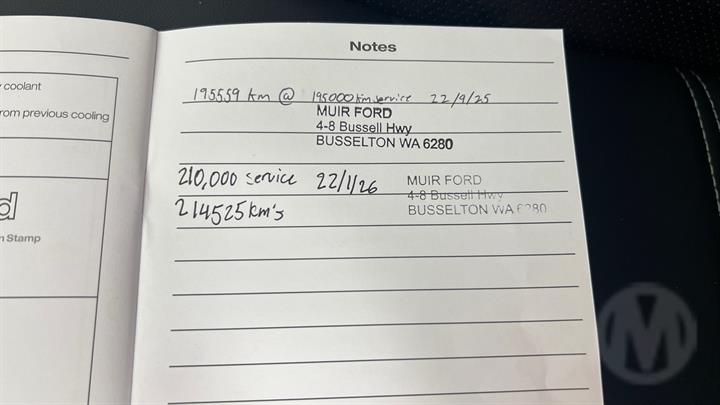 coolant
rom previous cooling
d
n Stamp
Notes
195559 km @ 195000km service 22/9/25
MUIR FORD
4-8 Bussell Hwy
BUSSELTON WA 6280
210,000 service 22/1/26
214525km's
MUIR FORD
4-8 Bussell Hwy
BUSSELTON WA 6280
M